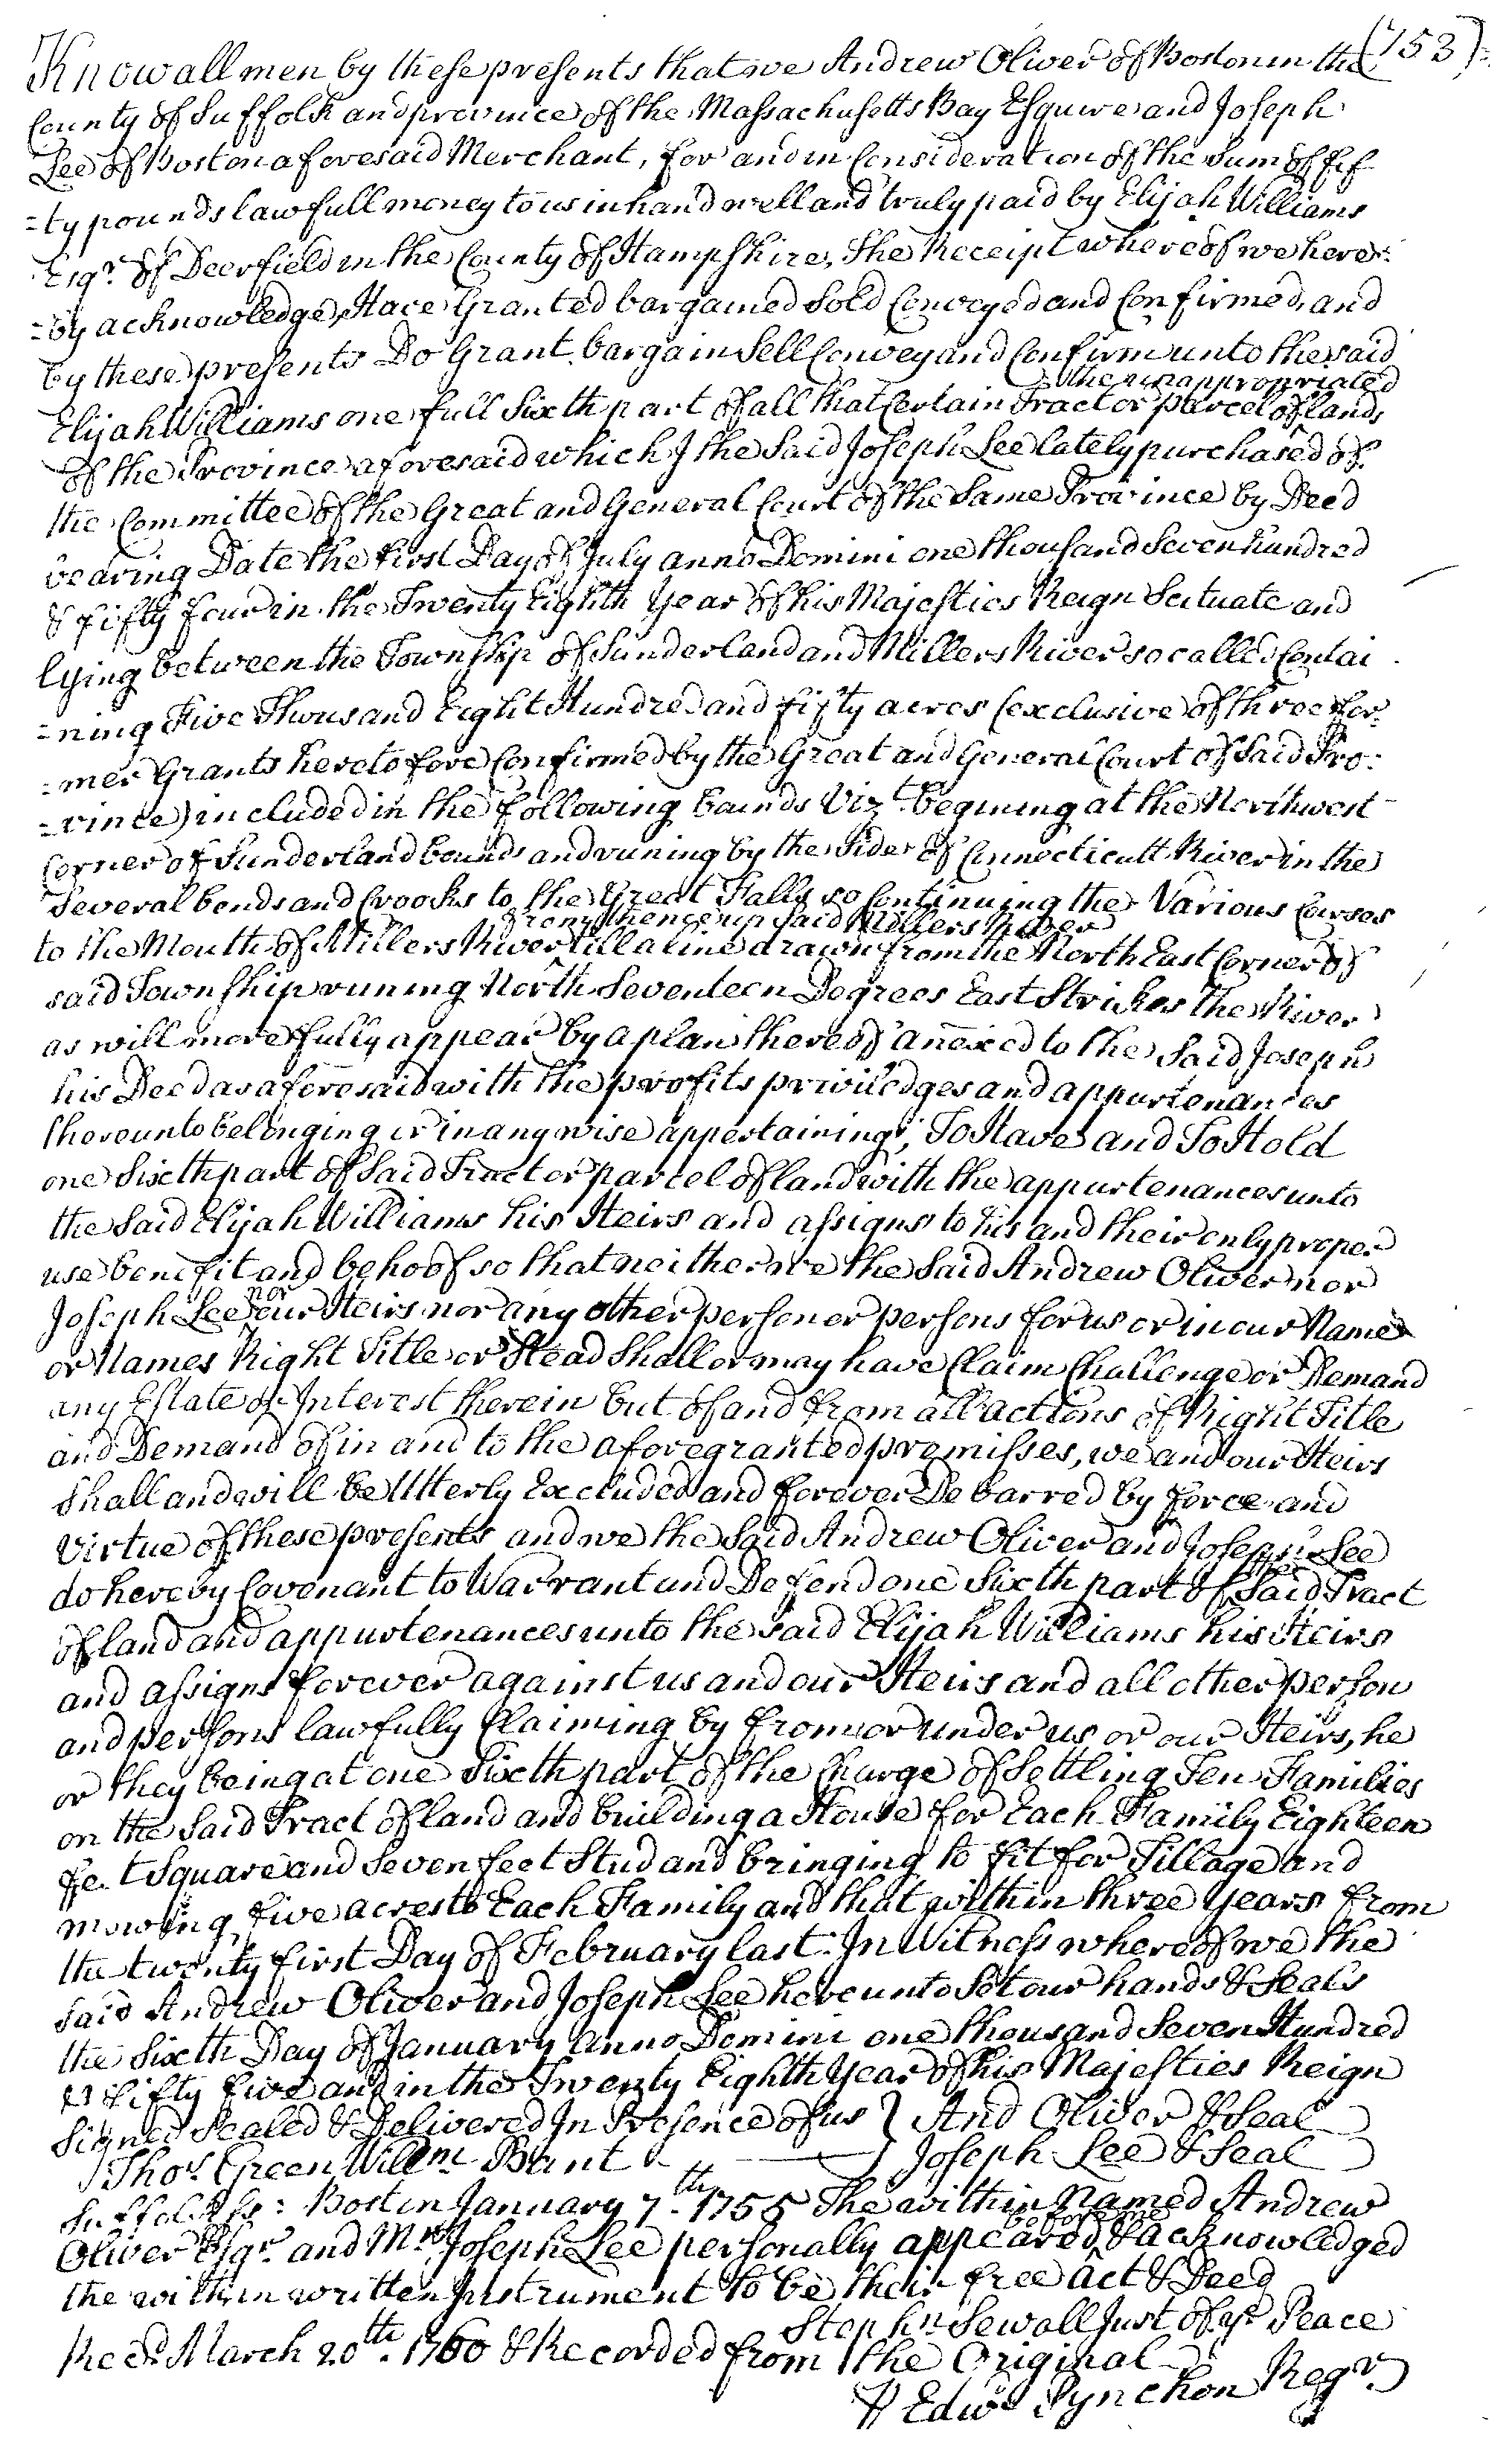 (753)
Know all men by these presents that we Andrew Oliver of Boston in the
County of Suffolk and province of the Massachusetts Bay Esquire and Joseph
Lee of Boston aforesaid Merchant, for and in Consideration of the Sum of fif
=ty pounds lawfull money to us in hand well and truly paid by Elijah Williams
Esqr. of Deerfield in the County of Hampshire, The Receipt whereof we here=
=by acknowledge, Have Granted bargained Sold Conveyed and Confirmed, and
by these presents Do Grant bargain Sell Convey and Confirm unto the said
the unappropriated
Elijah Williams one full Sixth part of all that Certain Tract or parcel of lands
of the Province aforesaid which I the Said Joseph Lee lately purchased of
the Committee of the Great and General Court of the Same Province by Deed
bearing Date the first Day of July anno Domini one thousand Seven hundred
& fifty four in the Twenty Eighth Year of his Majesties Reign Scituate and
lying between the Township of Sunderland and Millers River so called Contai
=ning Five Thousand Eight Hundred and fifty acres (exclusive of three for=
=mer Grants heretofore Confirmed by the Great and General Court of Said Pro=
=vince) included in the following bounds Vizt. begining at the Northwest
Corner of Sunderland bounds and runing by the Side of Connecticutt River in the
Several bends and Crooks to the Great Falls so Continuing the Various Courses
from thence up Said Millers River
to the Mouth of Millers River till a line drawn from the North East Corner of
said Township runing North Seventeen Degrees East Strikes the River
as will more fully appear by a plan thereof annexed to the Said Joseph
his Deed as aforesaid with the profits priviledges and appurtenances
thereunto belonging or in any wise appertaining; To Have and To Hold
one Sixth part of Said Tract or parcel of land with the appurtenances unto
the Said Elijah Williams his Heirs and assigns to his and their only proper
use benefit and behoof so that neither we the Said Andrew Oliver nor
nor
Joseph Lee our Heirs nor any other person or persons for us or in our Name
or Names Right Title or Stead Shall or may have Claim Challenge or Demand
any Estate or Interest therein but of and from all actions of Right Title
and Demand of in and to the aforegranted premisses, we and our Heirs
Shall and will be Utterly Excluded and forever Debarred by force and
Virtue of these presents and we the Said Andrew Oliver and Joseph Lee
the
do hereby Covenant to Warrant and Defend one Sixth part of Said Tract
of land and appurtenances unto the said Elijah Williams his Heirs
and assigns forever against us and our Heirs and all other person
and persons lawfully Claiming by from or under us or our Heirs, he
or they being at one Sixth part of the Charge of Settling Ten Families
on the Said Tract of land and building a House for Each Family Eighteen
feet Square and Seven feet Stud and bringing to fit for Tillage and
mowing five acres to Each Family and that within three Years from
the twenty first Day of February last. In Witness whereof we the
said Andrew Oliver and Joseph Lee hereunto Set our hands & Seals
the Sixth Day of January Anno Domini one thousand Seven Hundred
& Fifty five and in the Twenty Eighth Year of his Majesties Reign
Signed Sealed & Delivered In Presence of us } And Oliver & Seal
Thos. Green Willm. Bant } Joseph Lee & Seal
Suffolk ss: Boston January 7th. 1755 The within Named Andrew
before me
Oliver Esqr. and Mr. Joseph Lee personally appeared & acknowledged
the within written Instrument to be their free act & Deed
Stephn. Sewall Just of ye Peace
Recd. March 20th. 1760 & Recorded from the Original
⅌ Edwd. Pynchon Regr.